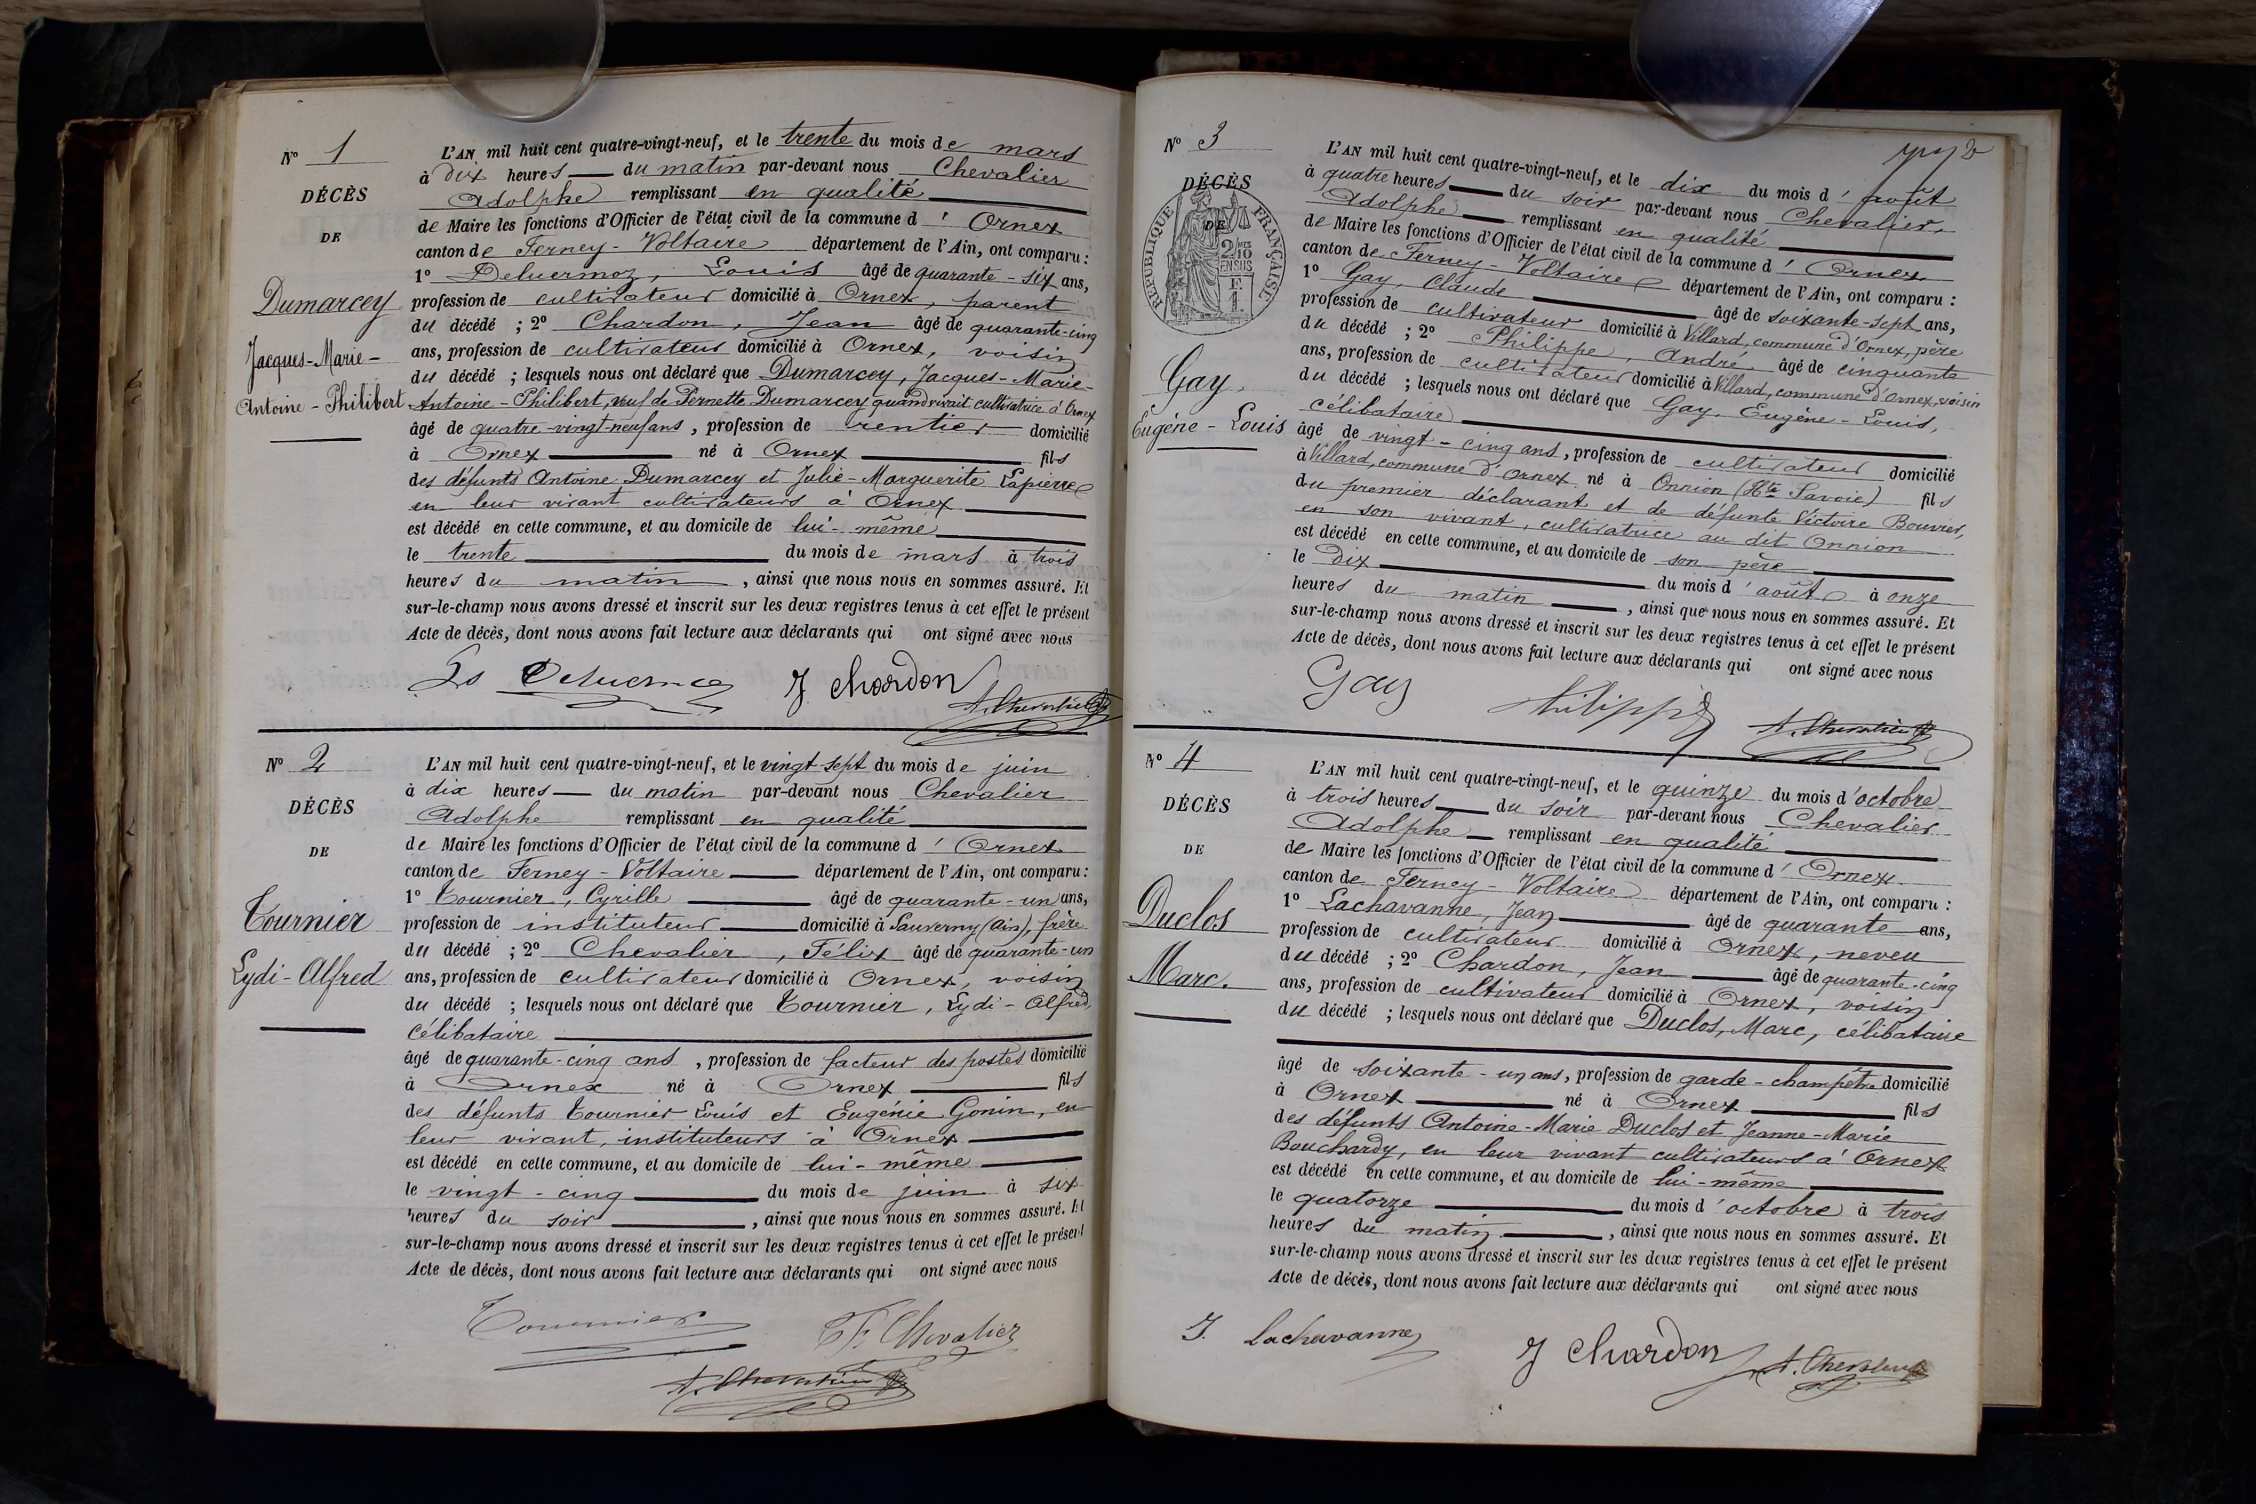 N° 1
DÉCÈS
DE
Dumarcey
Jacques-Marie-
Antoine-Philibert
L'AN mil huit cent quatre-vingt-neuf, et le trente du mois de mars
à dix heures du matin par-devant nous Chevalier
Adolphe remplissant en qualité
de Maire les fonctions d'Officier de l'état civil de la commune d'Ornex
canton de Ferney-Voltaire département de l'Ain, ont comparu :
1° Deluermoz, Louis âgé de quarante-six ans,
profession de cultivateur domicilié à Ornex, parent
du décédé ; 2° Chardon, Jean âgé de quarante-cinq
ans, profession de cultivateur domicilié à Ornex, voisin
du décédé ; lesquels nous ont déclaré que Dumarcey, Jacques-Marie-
Antoine-Philibert, veuf de Pernette Dumarcey quand vivait cultivatrice à Ornex
âgé de quatre-vingt-neuf ans, profession de rentier domicilié
à Ornex né à Ornex fils
des défunts Antoine Dumarcey et Julie-Marguerite Lapierre
en leur vivant cultivateurs à Ornex
est décédé en cette commune, et au domicile de lui-même
le trente du mois de mars à trois
heures du matin, ainsi que nous nous en sommes assuré. Et
sur-le-champ nous avons dressé et inscrit sur les deux registres tenus à cet effet le présent
Acte de décès, dont nous avons fait lecture aux déclarants qui ont signé avec nous
J Chardon
A. Chevalier
N° 2
DÉCÈS
DE
Tournier
Lydi-Alfred
L'AN mil huit cent quatre-vingt-neuf, et le vingt-sept du mois de juin
à dix heures du matin par-devant nous Chevalier
Adolphe remplissant en qualité
de Maire les fonctions d'Officier de l'état civil de la commune d'Ornex
canton de Ferney-Voltaire département de l'Ain, ont comparu :
1° Tournier, Cyrille âgé de quarante-un ans,
profession de instituteur domicilié à Sauverny (Ain), frère
du décédé ; 2° Chevalier, Félix âgé de quarante-un
ans, profession de cultivateur domicilié à Ornex, voisin
du décédé ; lesquels nous ont déclaré que Tournier, Lydi-Alfred,
célibataire
âgé de quarante-cinq ans, profession de facteur des postes domicilié
à Ornex né à Ornex fils
des défunts Tournier Louis et Eugénie Gonin, en
leur vivant, instituteurs à Ornex
est décédé en cette commune, et au domicile de lui-même
le vingt-cinq du mois de juin à six
heures du soir, ainsi que nous nous en sommes assuré. Et
sur-le-champ nous avons dressé et inscrit sur les deux registres tenus à cet effet le présent
Acte de décès, dont nous avons fait lecture aux déclarants qui ont signé avec nous
Tournier
F. Chevalier
A. Chevalier
N° 3
DÉCÈS
DE
RÉPUBLIQUE FRANÇAISE
2/10
EN SUS
F.
1.
Gay,
Eugène-Louis
L'AN mil huit cent quatre-vingt-neuf, et le dix du mois d'août
à quatre heures du soir par-devant nous Chevalier,
Adolphe remplissant en qualité
de Maire les fonctions d'Officier de l'état civil de la commune d'Ornex
canton de Ferney-Voltaire département de l'Ain, ont comparu :
1° Gay, Claude âgé de soixante-sept ans,
profession de cultivateur domicilié à Villard, commune d'Ornex, père
du décédé ; 2° Philippe, André âgé de cinquante
ans, profession de cultivateur domicilié à Villard, commune d'Ornex, voisin
du décédé ; lesquels nous ont déclaré que Gay, Eugène-Louis,
célibataire
âgé de vingt-cinq ans, profession de cultivateur domicilié
à Villard, commune d'Ornex né à Onnion (Hte Savoie) fils
du premier déclarant et de défunte Victoire Bouvres,
en son vivant, cultivatrice au dit Onnion
est décédé en cette commune, et au domicile de son père
le dix du mois d'août à onze
heures du matin, ainsi que nous nous en sommes assuré. Et
sur-le-champ nous avons dressé et inscrit sur les deux registres tenus à cet effet le présent
Acte de décès, dont nous avons fait lecture aux déclarants qui ont signé avec nous
Gay
Philippe
A. Chevalier
N° 4
DÉCÈS
DE
Duclos
Marc.
L'AN mil huit cent quatre-vingt-neuf, et le quinze du mois d'octobre
à trois heures du soir par-devant nous Chevalier
Adolphe remplissant en qualité
de Maire les fonctions d'Officier de l'état civil de la commune d'Ornex
canton de Ferney-Voltaire département de l'Ain, ont comparu :
1° Lachavanne, Jean âgé de quarante ans,
profession de cultivateur domicilié à Ornex, neveu
du décédé ; 2° Chardon, Jean âgé de quarante-cinq
ans, profession de cultivateur domicilié à Ornex, voisin
du décédé ; lesquels nous ont déclaré que Duclos, Marc, célibataire
âgé de soixante-un ans, profession de garde-champêtre domicilié
à Ornex né à Ornex fils
des défunts Antoine-Marie Duclos et Jeanne-Marie
Bouchardy, en leur vivant cultivateurs à Ornex
est décédé en cette commune, et au domicile de lui-même
le quatorze du mois d'octobre à trois
heures du matin, ainsi que nous nous en sommes assuré. Et
sur-le-champ nous avons dressé et inscrit sur les deux registres tenus à cet effet le présent
Acte de décès, dont nous avons fait lecture aux déclarants qui ont signé avec nous
J. Lachavanne
J Chardon
A. Chevalier